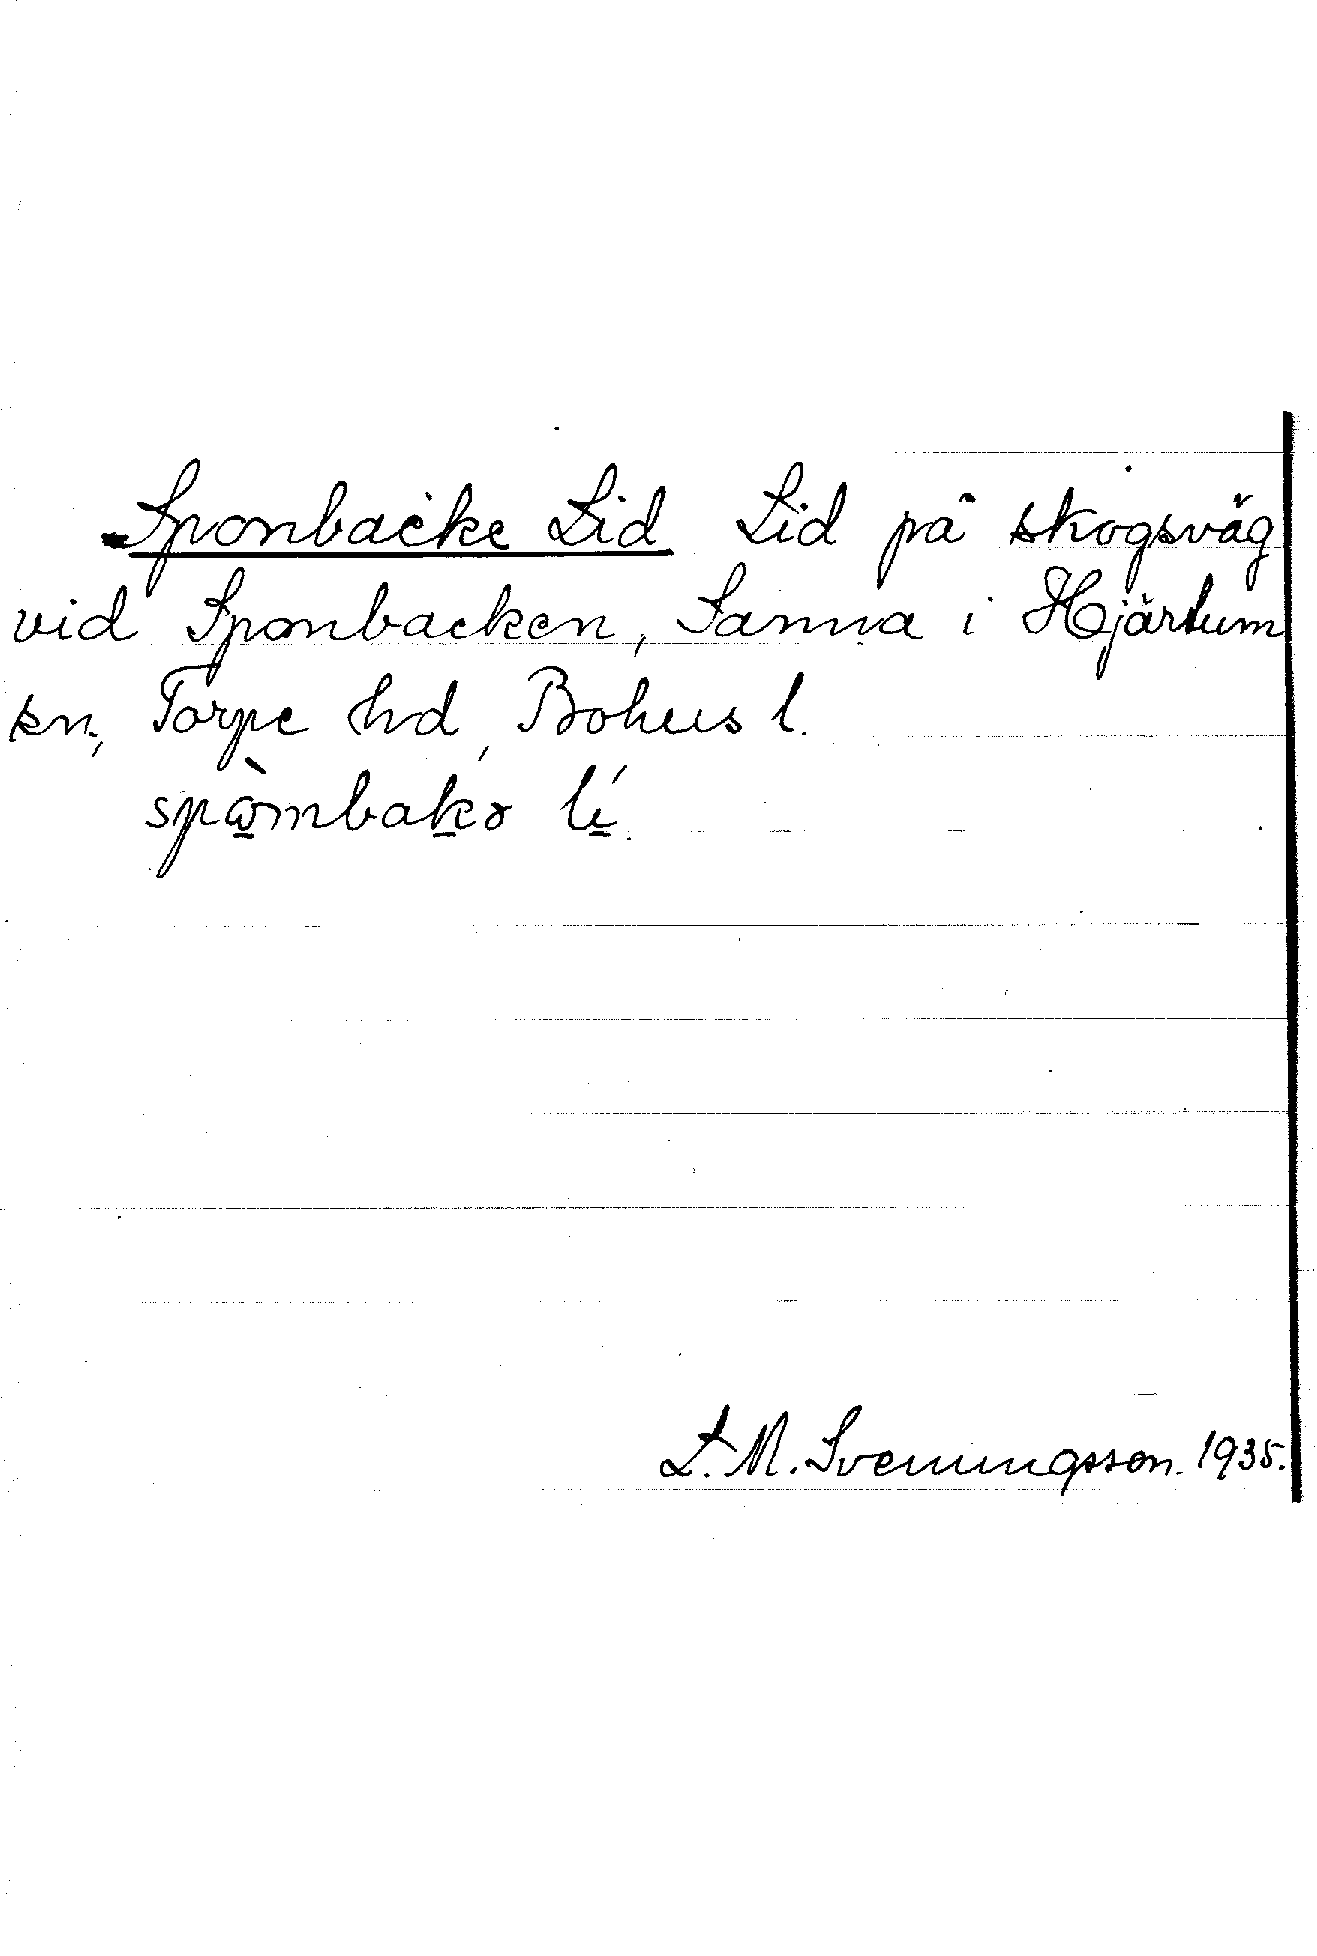 Sponbacke Lid Lid på skogsväg
vid Sponbacken, Sanna i Hjärtum
sn, Torpe hd, Bohus l.
spòmbakə lí.
L. M. Svenningsson. 1935.